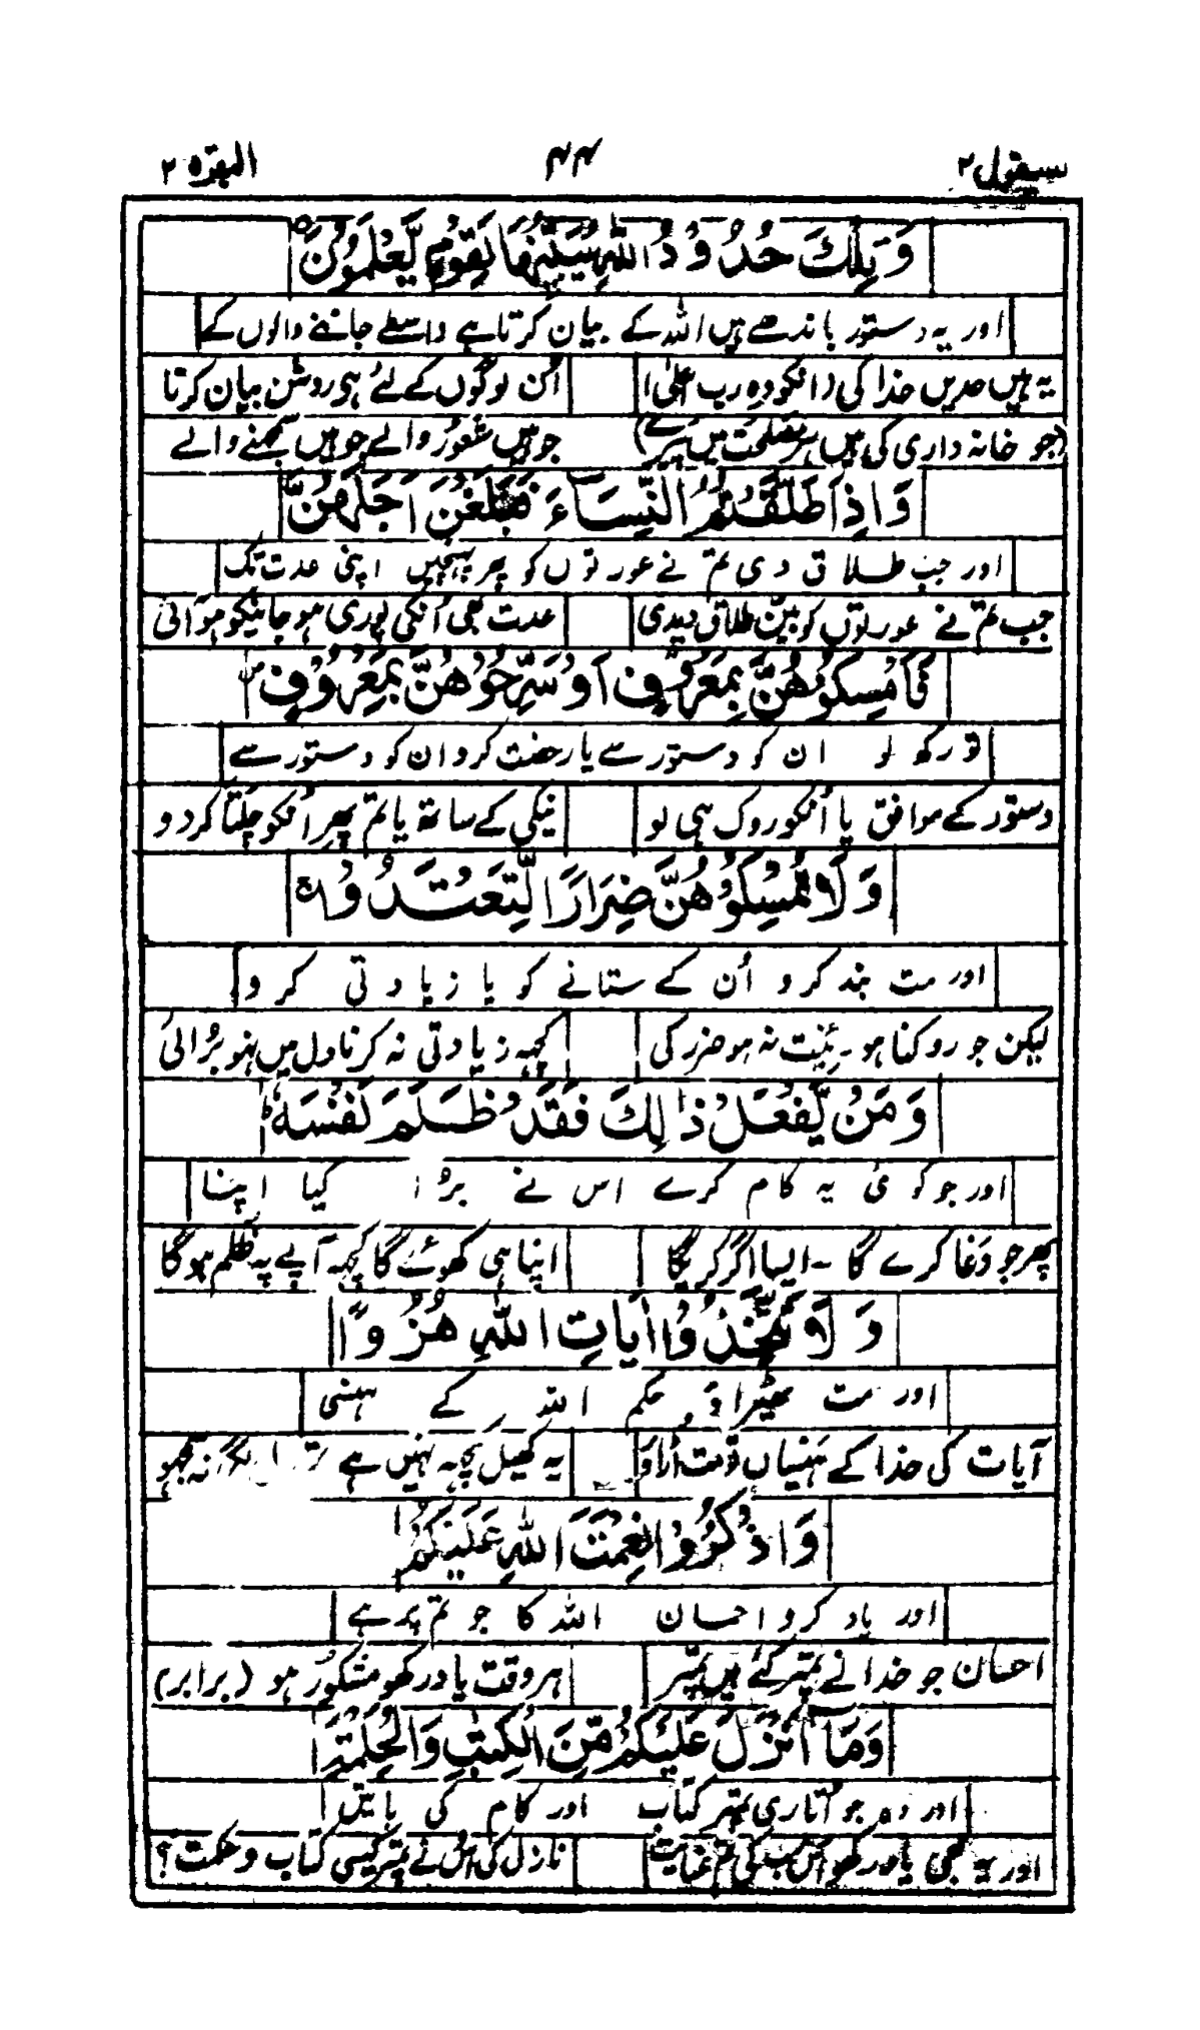 سیقول ۲ ۴۴ البقرہ ۲
وَتِلْكَ حُدُوْدُ اللّٰهِ يُبَيِّنُهَا لِقَوْمٍ يَّعْلَمُوْنَ
اور یہ دستور باندھے ہیں اللہ کے بیان کرتا ہے واسطے جاننے والوں کے
یہ ہیں حدیں خدا کی (انکو وہ رب اعلیٰ) اُن لوگوں کے لئے ہی روشن بیان کرتا
(جو خانہ داری کی ہیں ہر مصلحت میں) جو ہیں شعور والے جو ہیں سمجھنے والے
وَاِذَا طَلَّقْتُمُ النِّسَآءَ فَبَلَغْنَ اَجَلَهُنَّ
اور جب طلاق دی تم نے عورتوں کو پھر پہنچیں اپنی عدت تک
جب تم نے عورتوں کو بیّن طلاق دیدی عدت بھی اُنکی پوری ہو جانیکو ہو آئی
فَاَمْسِكُوْهُنَّ بِمَعْرُوْفٍ اَوْ سَرِّحُوْهُنَّ بِمَعْرُوْفٍ
تو رکھ لو ان کو دستور سے یا رخصت کرو ان کو دستور سے
دستور کے موافق یا اُنکو روک ہی لو نیکی کے ساتھ یا تم پھر اُنکو چلتا کر دو
وَلَا تُمْسِكُوْهُنَّ ضِرَارًا لِّتَعْتَدُوْا
اور مت بند کرو اُن کے ستانے کو یا زیادتی کرو
لیکن جو روکنا ہو۔ نیّت نہ ہو ضرر کی کچھ زیادتی نہ کرنا دل میں نہو بُرائی
وَمَنْ يَّفْعَلْ ذٰلِكَ فَقَدْ ظَلَمَ نَفْسَهٗ
اور جو کوئی یہ کام کرے اس نے برُا کیا اپنا
پھر جو دَغا کرے گا ۔ ایسا اگر کریگا اپنا ہی کھوئے گا کچھ آپے پہ ظلم ہو گا
وَلَا تَتَّخِذُوْا اٰيَاتِ اللّٰهِ هُزُوًا
اور مت ٹھیراؤ حکم اللہ کے ہنسی
آیات کی خدا کے ہنسیاں تو مت اُڑاؤ یہ کھیل کچھ نہیں ہے نہ سمجھو
وَاذْكُرُوْا نِعْمَتَ اللّٰهِ عَلَيْكُمْ
اور یاد کرو احسان اللہ کا جو تم پر ہے
احسان جو خدا نے تمپر کئے ہیں تمپر ہر وقت یاد رکھو مشکور ہو (برابر)
وَمَآ اَنْزَلَ عَلَيْكُمْ مِّنَ الْكِتٰبِ وَالْحِكْمَةِ
اور وہ جو اُتاری تمپر کتاب اور کام کی باتیں
اور یہ بھی یاد رکھو اُس کی عنایت نازل کی اُس نے تمپر کیسی کتاب و حکمت؟